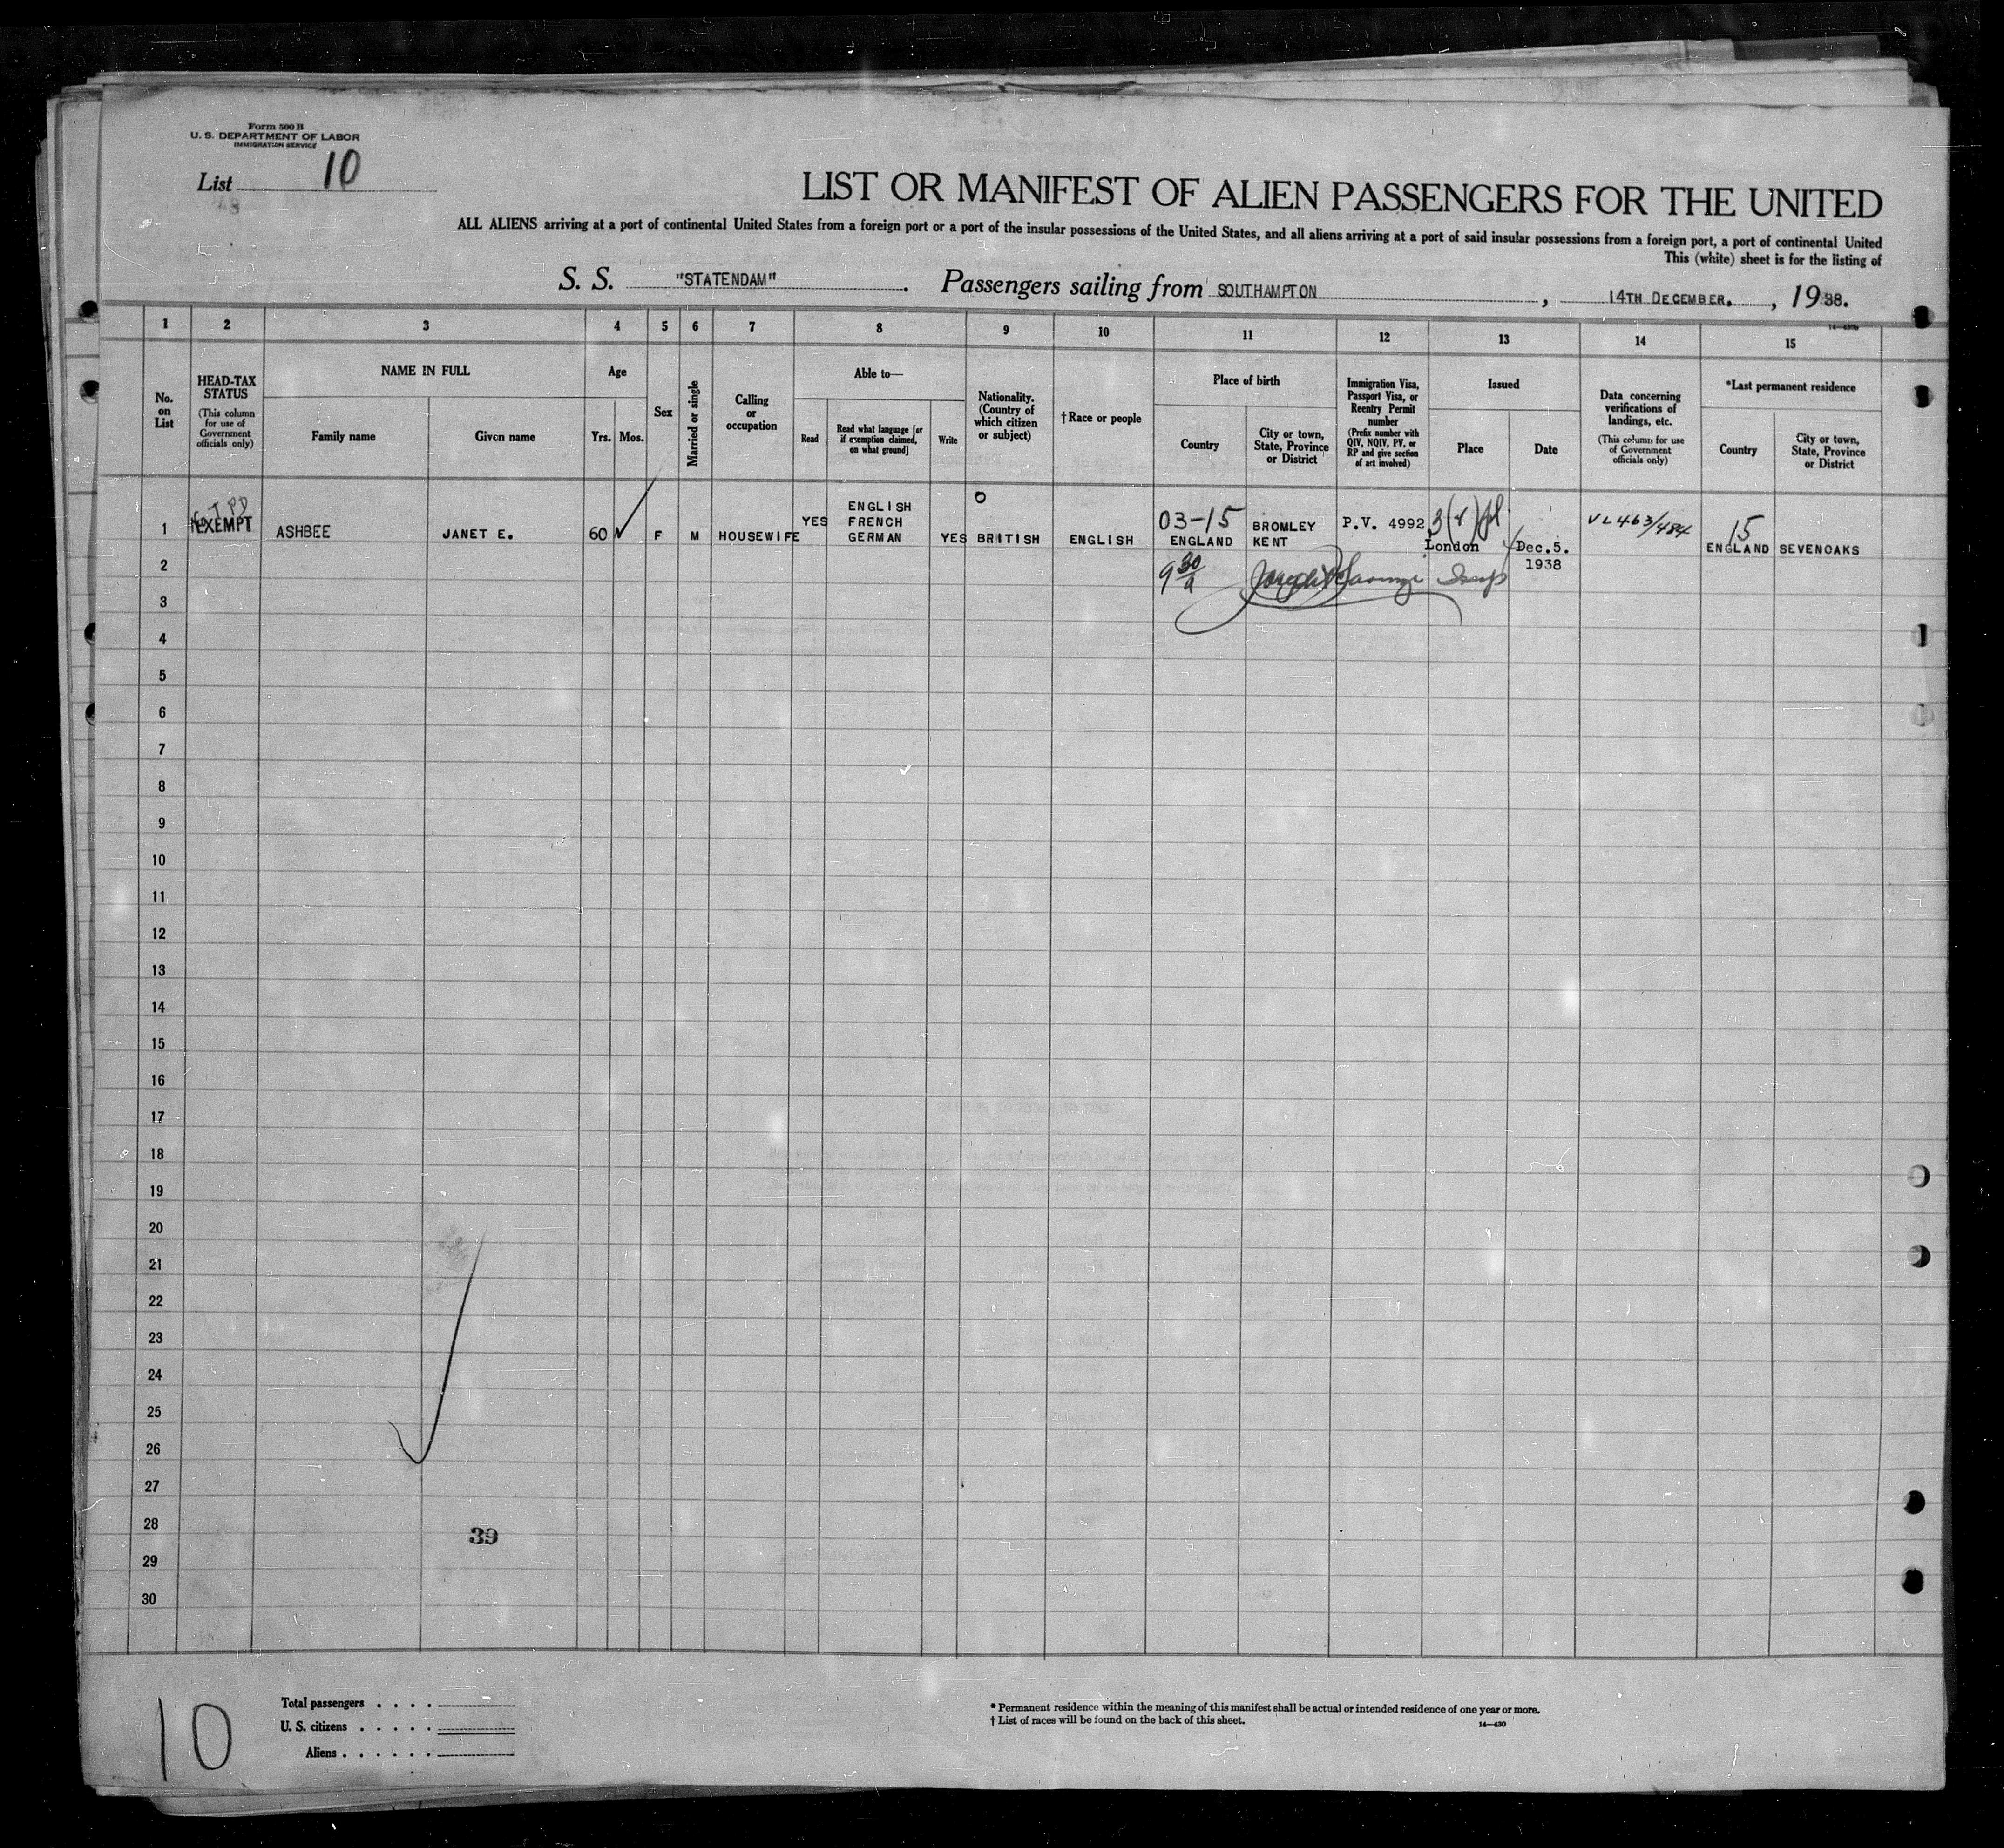 Form 500 B
U. S. DEPARTMENT OF LABOR
IMMIGRATION SERVICE
List 10
LIST OR MANIFEST OF ALIEN PASSENGERS FOR THE UNITED
ALL ALIENS arriving at a port of continental United States from a foreign port or a port of the insular possessions of the United States, and all aliens arriving at a port of said insular possessions from a foreign port, a port of continental United
This (white) sheet is for the listing of
S. S. "STATENDAM". Passengers sailing from SOUTHAMPTON, 14TH DECEMBER., 1938.
1 2 3 4 5 6 7 8 9 10 11 12 13 14 15
No. on List
HEAD-TAX STATUS
(This column for use of Government officials only)
NAME IN FULL
Family name
Given name
Age
Yrs.
Mos.
Sex
Married or single
Calling or occupation
Able to—
Read
Read what language [or if exemption claimed, on what ground]
Write
Nationality. (Country of which citizen or subject)
†Race or people
Place of birth
Country
City or town, State, Province or District
Immigration Visa, Passport Visa, or Reentry Permit number
(Prefix number with QIV, NQIV, PV, or RP and give section of act involved)
Issued
Place
Date
Data concerning verifications of landings, etc.
(This column for use of Government officials only)
*Last permanent residence
Country
City or town, State, Province or District
1 EXEMPT ASHBEE JANET E. 60 F M HOUSEWIFE YES ENGLISH FRENCH GERMAN YES BRITISH ENGLISH 03-15 ENGLAND BROMLEY KENT P.V. 4992 London Dec.5. 1938 VL463/484 15 ENGLAND SEVENOAKS
2 9 30/a
3
4
5
6
7
8
9
10
11
12
13
14
15
16
17
18
19
20
21
22
23
24
25
26
27
28
39
29
30
10
Total passengers . . . .
U. S. citizens . . . . .
Aliens . . . . . .
* Permanent residence within the meaning of this manifest shall be actual or intended residence of one year or more.
† List of races will be found on the back of this sheet.
14—430